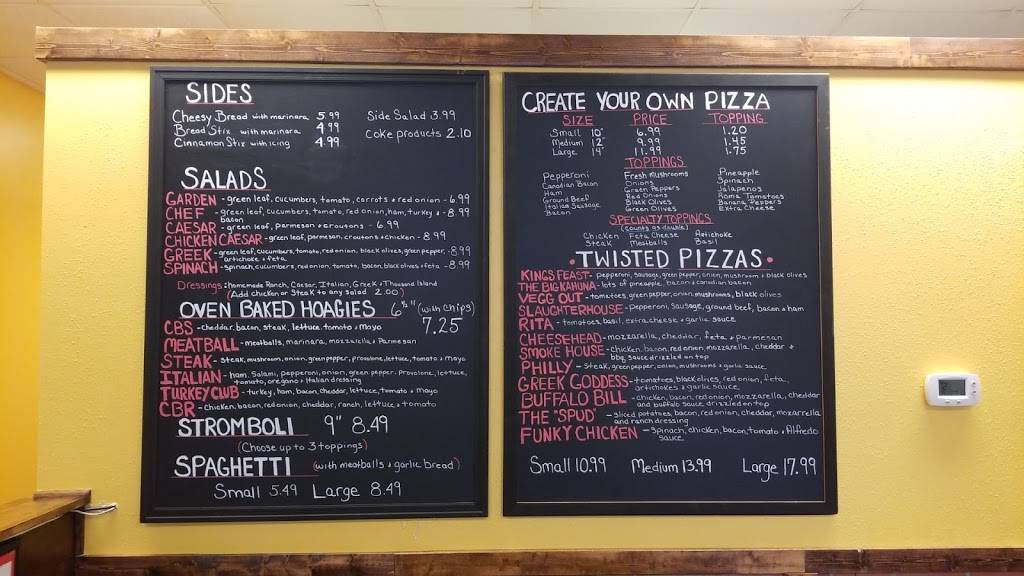 SIDES
Cheesy Bread with marinara 5.99
Bread Stix with marinara 4.99
Cinnamon Stix with icing 4.99
Side Salad 3.99
Coke products 2.10
SALADS
GARDEN - green leaf, cucumbers, tomato, carrots & red onion - 6.99
CHEF - green leaf, cucumbers, tomato, red onion, ham, turkey & bacon - 8.99
CAESAR - green leaf, parmesan & croutons - 6.99
CHICKEN CAESAR - green leaf, parmesan, croutons & chicken - 8.99
GREEK - green leaf, cucumbers, tomato, red onion, black olives, green pepper, artichoke & feta - 8.99
SPINACH - spinach, cucumbers, red onion, tomato, bacon, black olives & feta - 8.99
Dressings: Homemade Ranch, Caesar, Italian, Greek & Thousand Island
(Add chicken or Steak to any salad 2.00)
OVEN BAKED HOAGIES 6" (with chips)
7.25
CBS - cheddar, bacon, steak, lettuce, tomato & mayo
MEATBALL - meatballs, marinara, mozzarella & Parmesan
STEAK - steak, mushroom, onion, green pepper, provolone, lettuce, tomato & mayo
ITALIAN - ham, salami, pepperoni, onion, green pepper, provolone, lettuce, tomato, oregano & Italian dressing
TURKEY CLUB - turkey, ham, bacon, cheddar, lettuce, tomato & mayo
CBR - chicken, bacon, red onion, cheddar, ranch, lettuce & tomato
STROMBOLI 9" 8.49
(Choose up to 3 toppings)
SPAGHETTI (with meatballs & garlic bread)
Small 5.49 Large 8.49
CREATE YOUR OWN PIZZA
SIZE PRICE TOPPING
Small 10" 6.99 1.20
Medium 12" 9.99 1.45
Large 14" 11.99 1.75
TOPPINGS
Pepperoni
Canadian Bacon
Ham
Ground Beef
Italian Sausage
Bacon
Fresh Mushrooms
Onions
Green Peppers
Red Onions
Black Olives
Green Olives
Pineapple
Spinach
Jalapenos
Roma Tomatoes
Banana Peppers
Extra Cheese
SPECIALTY TOPPINGS
(counts as double)
Chicken Feta Cheese Artichoke
Steak Meatballs Basil
• TWISTED PIZZAS •
KINGS FEAST - pepperoni, sausage, green pepper, onion, mushroom & black olives
THE BIG KAHUNA - lots of pineapple, bacon & canadian bacon
VEGG OUT - tomatoes, green pepper, onion, mushrooms, black olives
SLAUGHTERHOUSE - pepperoni, sausage, ground beef, bacon & ham
RITA - tomatoes, basil, extra cheese & garlic sauce
CHEESEHEAD - mozzarella, cheddar, feta & parmesan
SMOKE HOUSE - chicken, bacon, red onion, mozzarella, cheddar & bbq sauce drizzled on top
PHILLY - steak, green pepper, onion, mushrooms & garlic sauce
GREEK GODDESS - tomatoes, black olives, red onion, feta, artichokes & garlic sauce
BUFFALO BILL - chicken, bacon, red onion, mozzarella, cheddar and buffalo sauce drizzled on top
THE "SPUD" - sliced potatoes, bacon, red onion, cheddar, mozzarella and ranch dressing
FUNKY CHICKEN - Spinach, chicken, bacon, tomato & Alfredo sauce
Small 10.99 Medium 13.99 Large 17.99